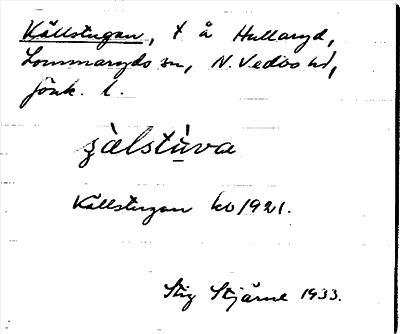 Källstugan, t å Hullaryd,
Lommaryds sn, N. Vedbo hd,
Jönk. l.
şàlstùva
Källstugan kb 1921.
Stig Stjärne 1933.